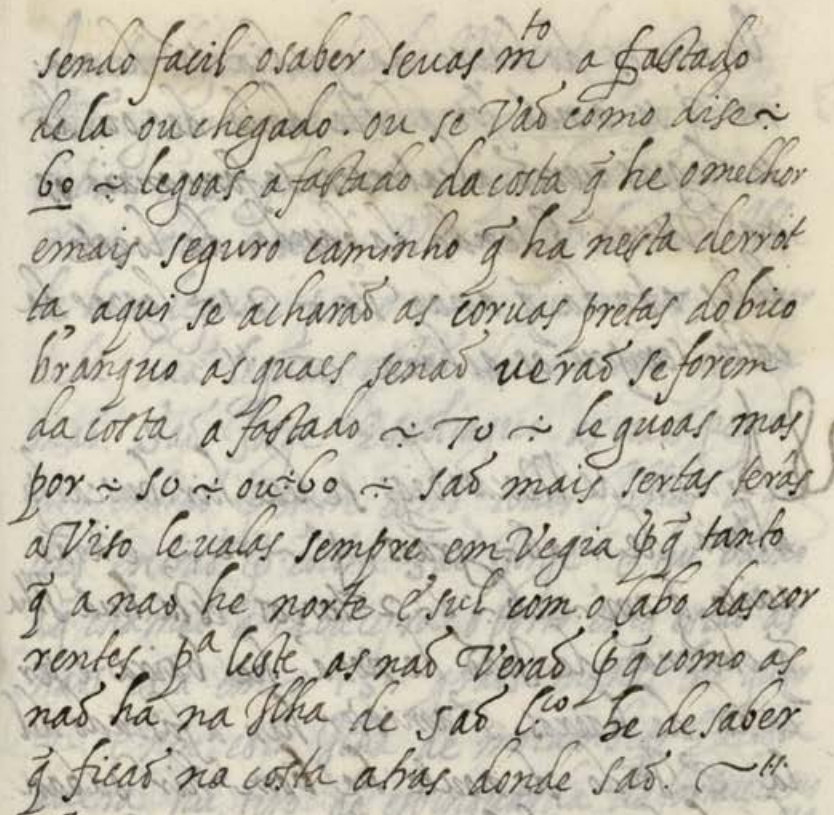 sendo facil osaber seuas mto afastado
dela ou chegado. ou se Vaõ como dise ~
60 ÷ legoas afastado dacosta q̃ he omelhor
emais seguro caminho q̃ ha nesta derrot
ta aqui se acharaõ as coruas pretas dobico
branquo as quaes senaõ ueraõ seforem
da costa afastado ÷ 70 ÷ leguoas mas
por ~ 50 ÷ ou ÷ 60 ÷ saõ mais sertas terâs
aViso leualas sempre em Vegia pq̃ tanto
q̃ a nao he norte e sul com o Cabo dascor
rentes pa leste as naõ Veraõ pq̃ como as
naõ ha na Ilha de saõ l.ço he desaber
q̃ ficaõ na costa atras donde saõ. ~